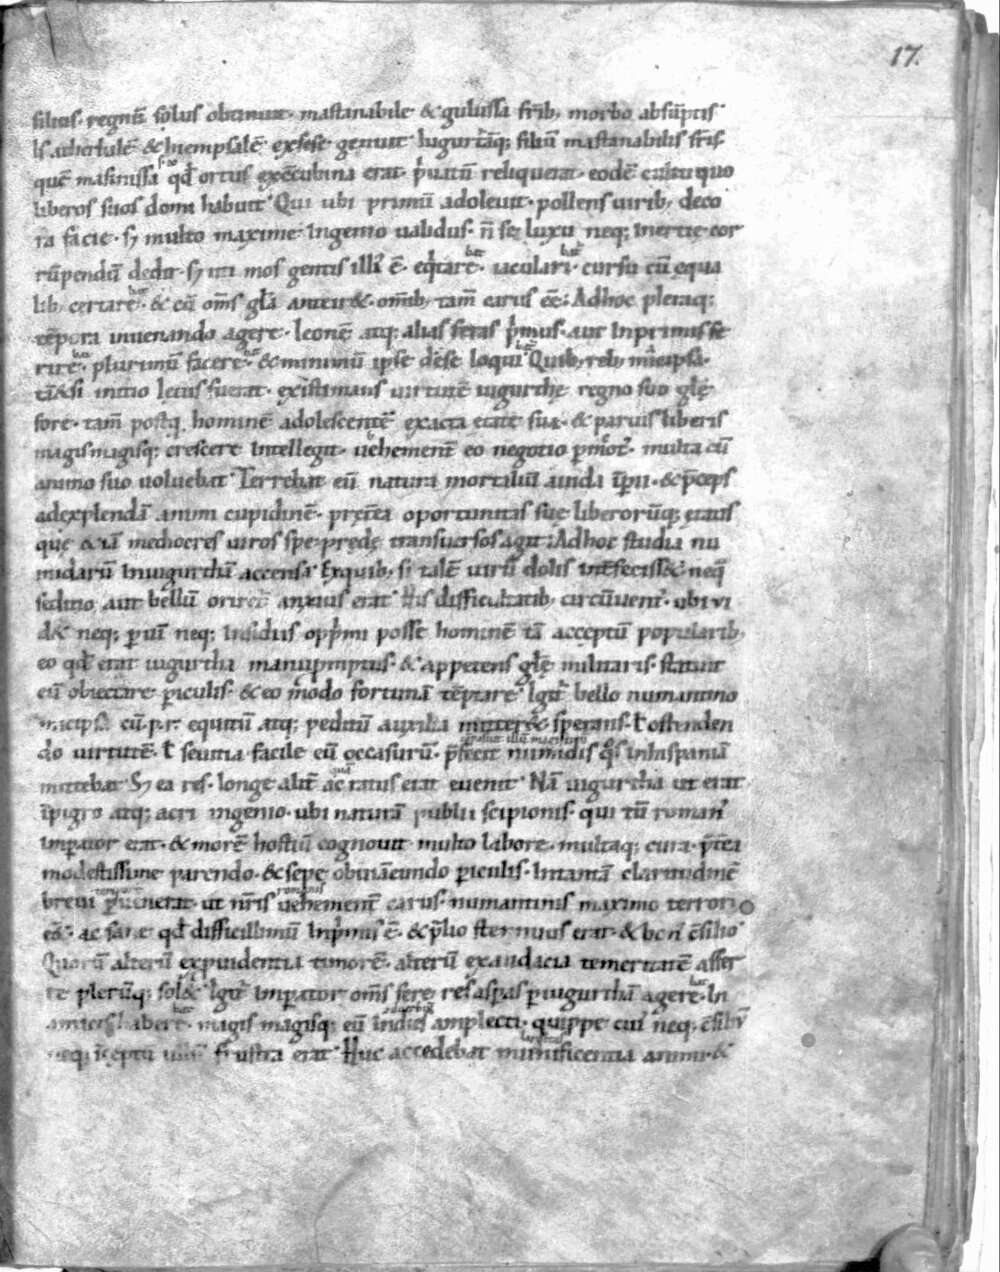 17.
filius. regnū solus obtinuit. mastanabile & gulussa frib; morbo absūptis.
Is adherbalē & hiempsalē ex sese genuit. Iugurtāq; filiū mastanabilis fris.
quē masinissa qđ ortus ex cōcubina erat. puatū reliquerat. eodē cultu quo
liberos suos domi habuit. Qui ubi primū adoleuit. pollens uirib; deco
ra facie. sȝ multo maxime ingenio ualidus. n̄ se luxu neq; inertie cor
rūpendū dedit. sȝ uti mos gentis illi ē. eqtare. iaculari. cursu cū equa
lib; certare. & cū om̄s glā anteir&. omīb; tam̄ carus eē; Adhoc pleraq;
tēpora in uenando agere. leonē atq; alias feras pmus. aut inprimis fe
rire. plurimū facere. & minimū ipse de se loqui. Quib; reb; micipsa.
tā&si initio letus fuerat. existimans uirtutē iugurthe regno suo glę
fore. tam̄ postq hominē adolescentē exacta etate sua. & paruis liberis
magis magisq; crescere intellegit. uehementˉ eo negotio pmotˀ. multa cū
animo suo uoluebat. Terrebat eū natura mortaliū auida īpii. & pceps
ad explendā animi cupidinē. pretea oportunitas sue liberorūq; etatis
quę & iā mediocres uiros spe prędę transuersos agit; Adhoc studia nu
midarū in iugurthā accensa. Exquib; si talē uirū dolis interfecisse& neq
seditio aut bellū oriret anxius erat. His difficultatib; circūuentˀ. ubi vi
d& neq; p uī neq; insidiis oppmi posse hominē tā acceptū popularib;
eo qđ erat iugurtha manu pmptus. & appetens glę militaris. statuit
eū obiectare piculis. & eo modo fortunā tēptare. Igit bello numantino
micipsa cū p.r. equitū atq; peditū auxilia mitter& sperans. ł ostenden
do uirtutē. ł seuitia facile eū occasurū. pfecit numidis qˀs in hispaniā
mittebat. Sȝ ea res. longe alit̄ ac ratus erat euenit. Nā iugurtha ut erat
īpigro atq; acri ingenio. ubi naturā publii scipionis. qui tū romanˀ
impator erat. & morē hostiū cognouit multo labore. multaq; cura. pterea
modestissime parendo. & sepe obuiā eundo piculis. in tantā claritudinē
breui puenerat. ut nr̄is uehementˉ carus. numantinis maximo terrori
ess&. ac sane qđ difficillimū inpmis ē. & plio strennuus erat. & bon cōsilio
Quorū alterū ex puidentia timorē. alterū ex audacia temeritatē affer
re plerūq; sol&. Igit impator om̄s fere res aspas p iugurthā agere. In
amicis habere. magis magisq; eū in dies amplecti. quippe cui neq; cōsiliū
neq īceptū ullū frustra erat. Huc accedebat munificentia animi. &